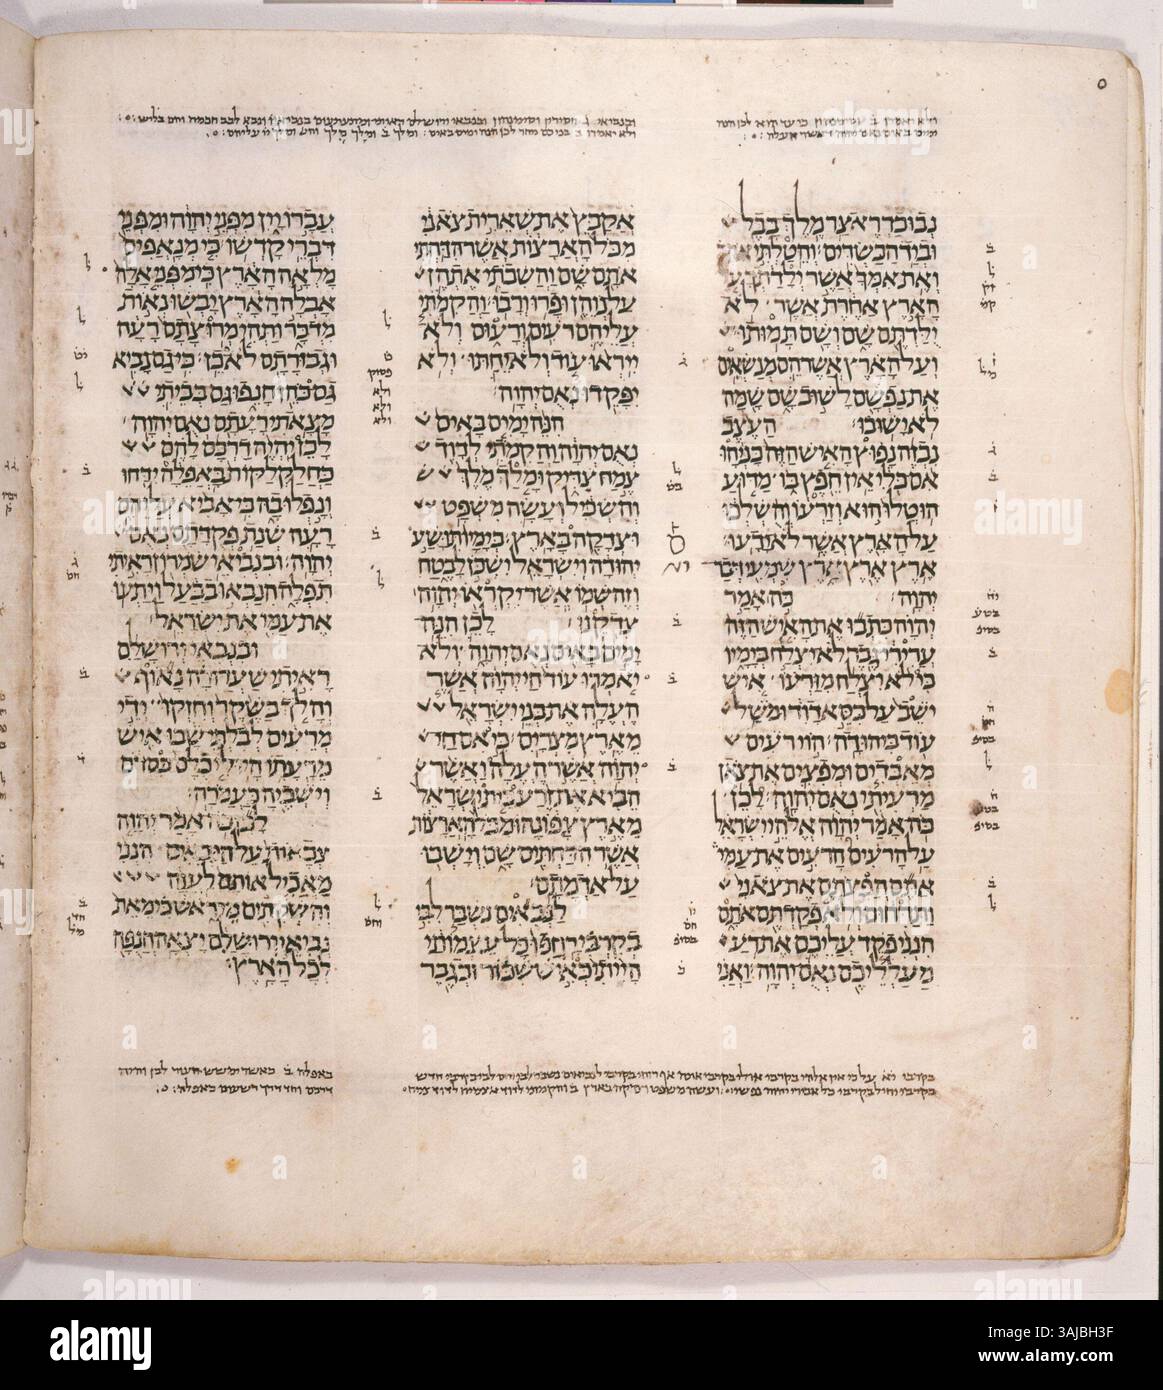 נבוכדראצר מלך בבל
וביד הכשדים והטלתי אתך
ואת אמך אשר ילדתך על
הארץ אחרת אשר לא
ילדתם שם ושם תמותו
ועל הארץ אשר הם מנשאים
את נפשם לשוב שם שמה
לא ישובו העצב
נבזה נפוץ האיש הזה כניהו
אם כלי אין חפץ בו מדוע
הוטלו הוא וזרעו והשלכו
על הארץ אשר לא ידעו
ארץ ארץ ארץ שמעי דבר
יהוה כה אמר
יהוה כתבו את האיש הזה
ערירי גבר לא יצלח בימיו
כי לא יצלח מזרעו איש
ישב על כסא דוד ומשל
עוד ביהודה הוי רעים
מאבדים ומפצים את צאן
מרעיתי נאם יהוה לכן
כה אמר יהוה אלהי ישראל
על הרעים הרעים את עמי
אתם הפצתם את צאני
ותדחום ולא פקדתם אתם
הנני פקד עליכם את רע
מעלליכם נאם יהוה ואני
אקבץ את שארית צאני
מכל הארצות אשר הדחתי
אתם שם והשבתי אתהן
על נוהן ופרו ורבו והקמתי
עליהם רעים ורעום ולא
ייראו עוד ולא יחתו ולא
יפקדו נאם יהוה
הנה ימים באים
נאם יהוה והקמתי לדוד
צמח צדיק ומלך מלך
והשכיל ועשה משפט
וצדקה בארץ בימיו תושע
יהודה וישראל ישכן לבטח
וזה שמו אשר יקראו יהוה
צדקנו לכן הנה
ימים באים נאם יהוה ולא
יאמרו עוד חי יהוה אשר
העלה את בני ישראל
מארץ מצרים כי אם חי
יהוה אשר העלה ואשר
הביא את זרע בית ישראל
מארץ צפונה ומכל הארצות
אשר הדחתים שם וישבו
על אדמתם
לנבאים נשבר לבי
בקרבי רחפו כל עצמותי
הייתי כאיש שכור וכגבר
עברו יין מפני יהוה ומפני
דברי קדשו כי מנאפים
מלאה הארץ כי מפני אלה
אבלה הארץ יבשו נאות
מדבר ותהי מרוצתם רעה
וגבורתם לא כן כי גם נביא
גם כהן חנפו גם בביתי
מצאתי רעתם נאם יהוה
לכן יהיה דרכם להם
כחלקלקות באפלה ידחו
ונפלו בה כי אביא עליהם
רעה שנת פקדתם נאם
יהוה ובנביאי שמרון ראיתי
תפלה הנבאו בבעל ויתעו
את עמי את ישראל
ובנבאי ירושלם
ראיתי שערורה נאוף
והלך בשקר וחזקו ידי
מרעים לבלתי שבו איש
מרעתו היו לי כלם כסדם
וישביה כעמרה
לכן כה אמר יהוה
צבאות על הנבאים הנני
מאכיל אותם לענה
והשקתים מי ראש כי מאת
נביאי ירושלם יצאה חנפה
לכל הארץ
alamy
Image ID: 3AJBH3F
www.alamy.com